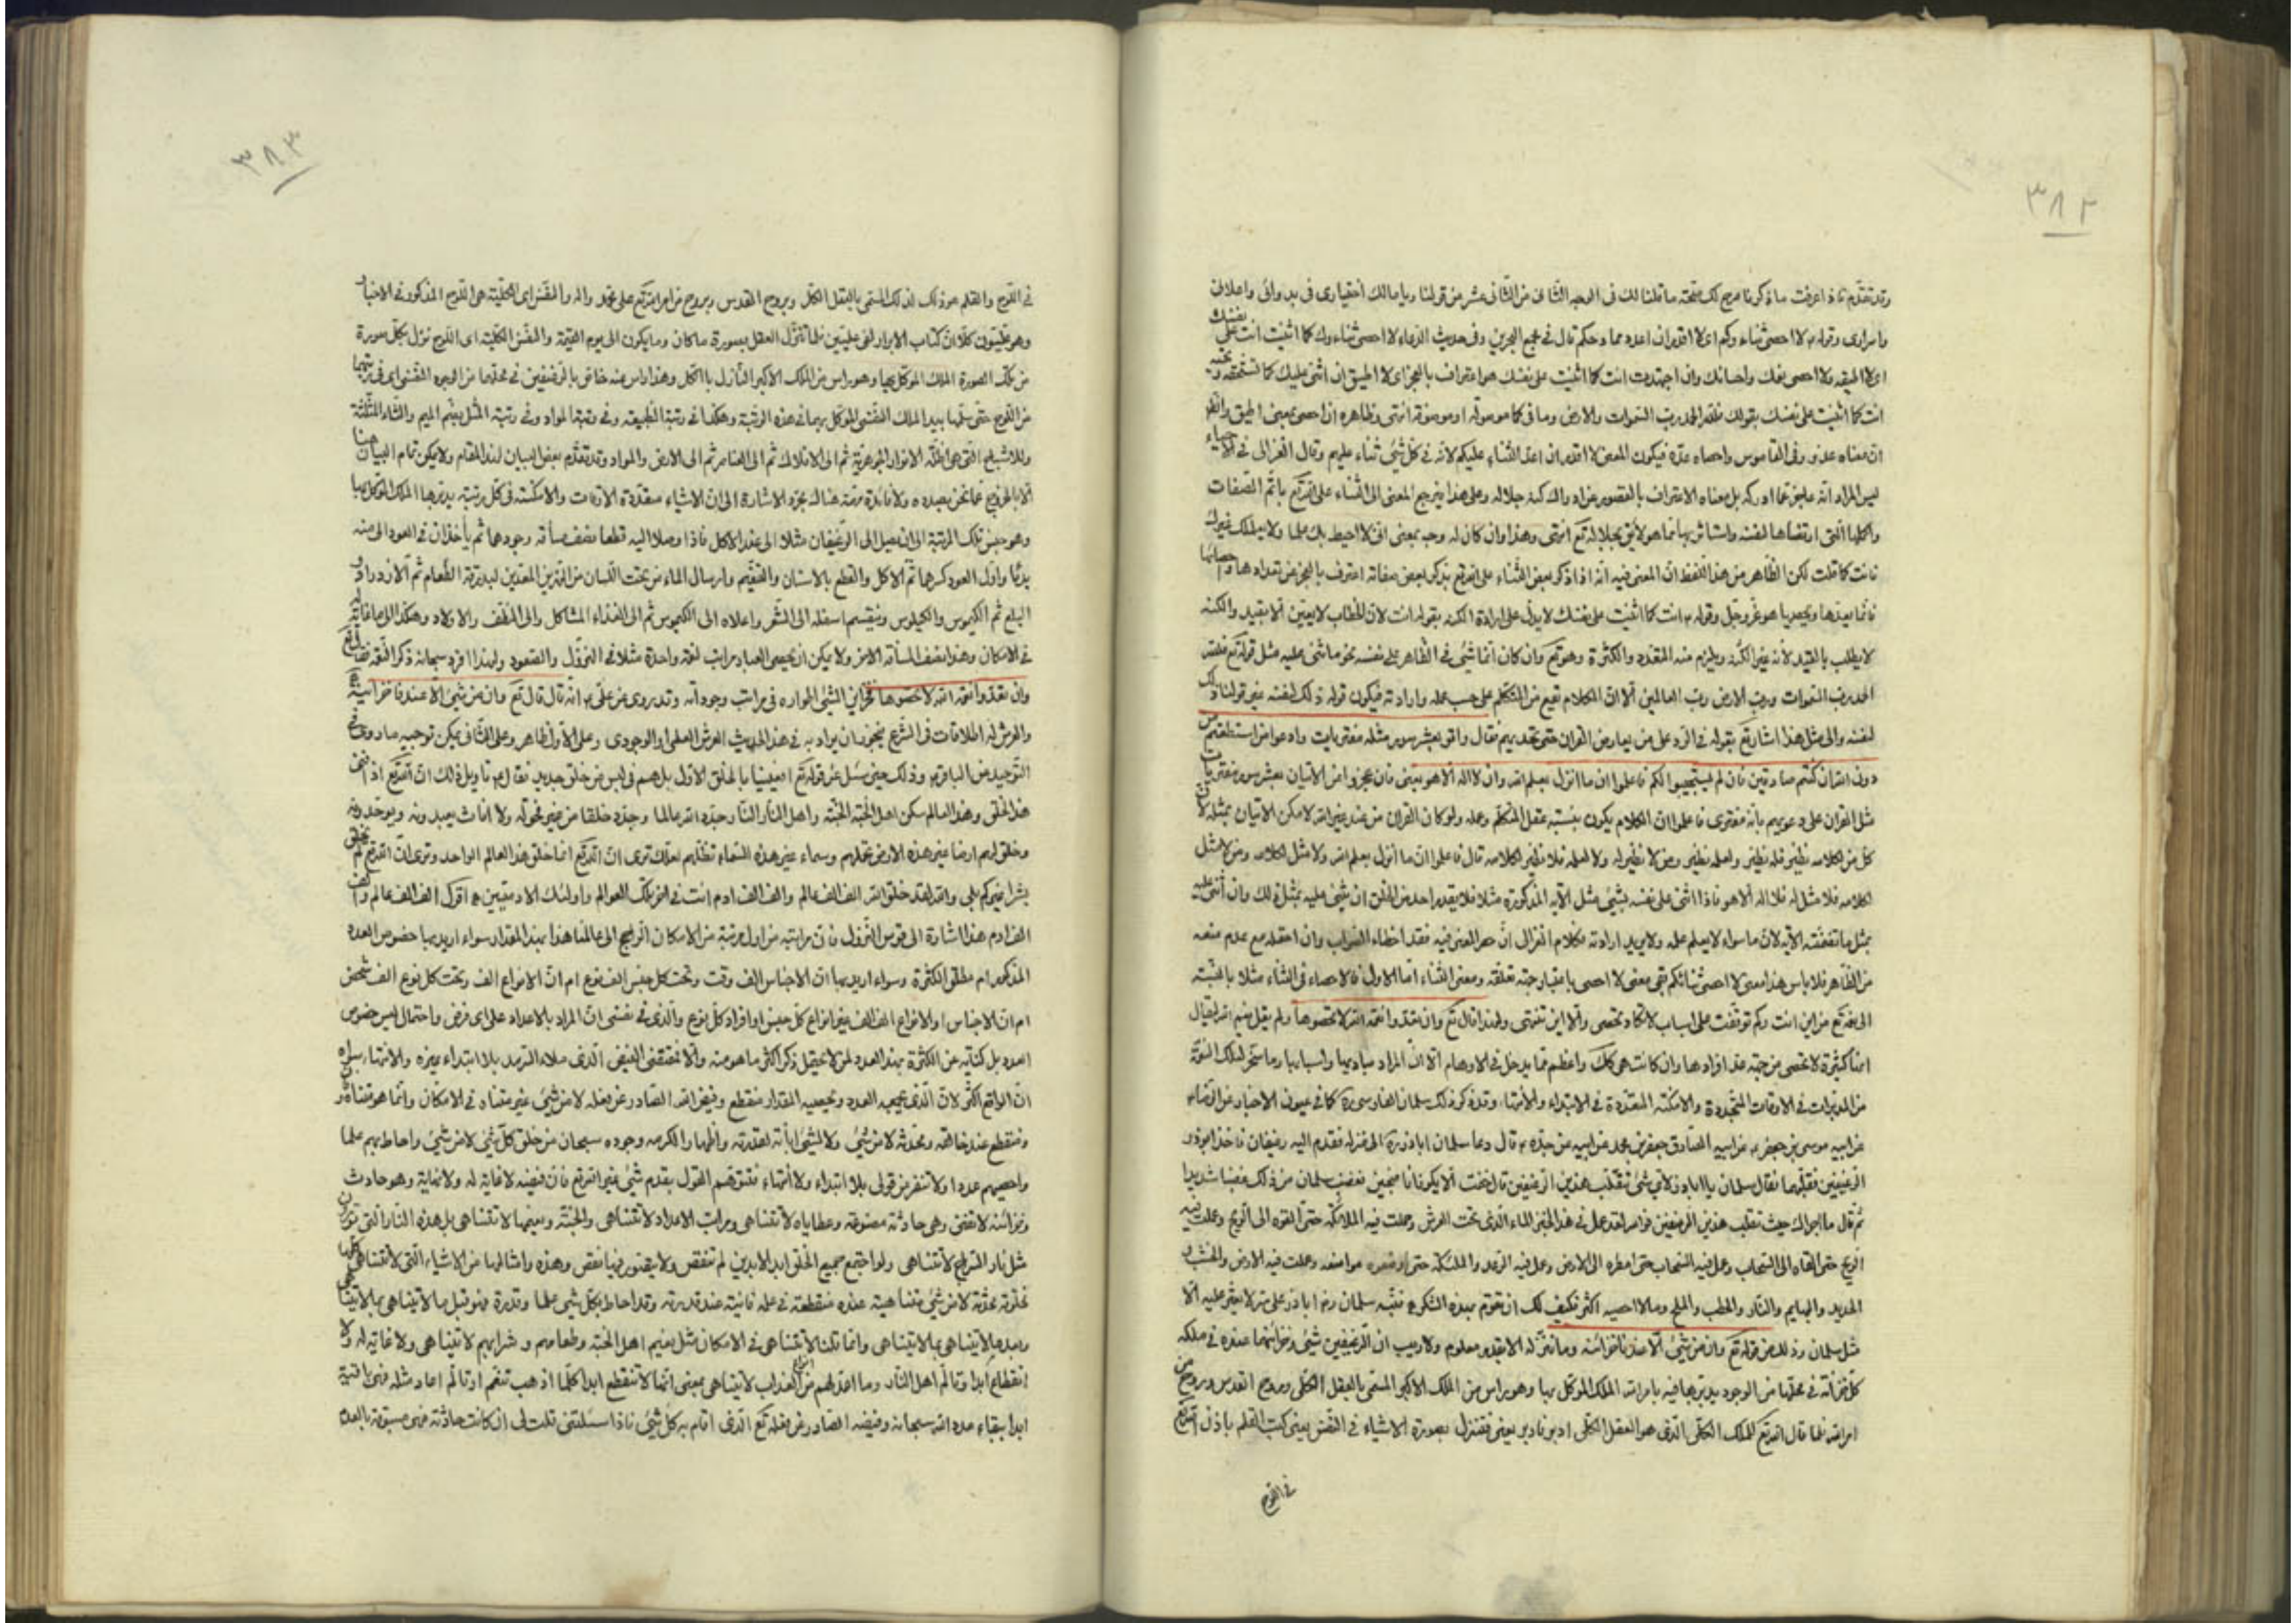 ٣٨٢
وقد تقدم فاذا عرفت ما ذكرنا صح لك صحة ما قلنا لك فى الوجه الثانى من الثانى عشر من قولنا ويا مالك اختيارى فى بدوائى واعلانى
واسرارى وقوله لا احصى ثناءكم اى لا اقدر ان اعدد مما وحكم قال فى مجمع البحرين وفى حديث الدعاء لا احصى ثناء عليك كما اثنيت انت على نفسك
اى لا اطيقه ولا احصى نعمك واحسانك وان اجتهدت انت كما اثنيت على نفسك هو اعتراف بالعجز اى لا اطيق ان اثنى عليك كما تستحقه وتحبه
انت كما اثنيت على نفسك بقولك فلله الحمد رب السموات والارض وما فى كما موصولة او موصوفة انتهى وظاهره ان احصى بمعنى اطيق والظ
ان معناه عد وفى القاموس واحصاه عده فيكون المعنى لا اقدر ان اعد الثناء عليكم لانه فى كل شئ ثناء عليهم وقال الغزالى فى الاحياء
ليس المراد انه عاجز عما ادركه بل معناه الاعتراف بالقصور عن ادراك كنه جلاله وعلى هذا يرجع المعنى الى الثناء على الله تع باتم الصفات
واكملها التى ارتضاها لنفسه واستاثر بها مما هو لايق بجلاله تع انتهى وهذا وان كان له وجه بمعنى انى لا احيط بك علما ولا يعلمك غيرك
فانت كما قلت لكن الظاهر من هذا اللفظ ان المعنى فيه انه اذا ذكر بعض الثناء على الله تع بذكر بعض صفاته اعترف بالعجز عن تعدادها واحصائها
فانما يعدها ويحصيها هو عز وجل وقوله انت كما اثنيت على نفسك لا يدل على ارادة الكنه بقوله انت لان الخطاب لا يعين الا بقيد والكنه
لا يطلب بالقيد لانه غير الكنه ويلزم منه التعدد والكثرة وهو تع وان كان انما شئ فى الظاهر على نفسه بنحو ما شئ عليه مثل قوله تع فلله
الحمد رب السموات ورب الارض رب العالمين الا ان الكلام يقع من المتكلم على حسب علمه وارادته فيكون قوله ذلك لنفسه غير قولنا ذلك
لنفسه والى مثل هذا اشار تع بقوله فى الرد على من يعارض القران حتى تحديهم فقال واتوا بعشر سور مثله مفتريات وادعوا من استطعتم من
دون الله ان كنتم صادقين فان لم يستجيبوا لكم فاعلموا ان ما انزل بعلم الله وان لا اله الا هو يعنى فان عجزوا من الاتيان بعشر سور مفتريات
مثل القران على دعويهم بانه مفترى فاعلموا ان الكلام يكون بنسبة عقل المتكلم وعلمه ولو كان القران من عند غير الله لامكن الاتيان بمثله لان
كل من لكلامه نظير فله نظير ولعلمه نظير ومن لا نظير له ولا لعلمه فلا نظير لكلامه قال فاعلموا ان ما انزل بعلم الله ولا مثل لكلامه ومن لا مثل
لكلامه فلا مثل له فلا اله الا هو فاذا اثنى على نفسه بشئ مثل الاية المذكورة مثلا فلا يقدر احد من الخلق ان يثنى عليه بمثل ذلك وان اثنى عليه
بمثل ما تضمنته الاية لان ما سواه لا يعلم علمه ولا يريد ارادته فكلام الغزالى ان حصر المعنى فيه فقد اخطاء الصواب وان احتمله مع عدم منعه
من الظاهر فلا باس هذا معنى لا احصى ثنائكم بقى معنى لا احصى باعتبار جهة تعلقه ومعنى الثناء اما الاول فالاحصاء فى الثناء مثلا بالنسبة
الى نعمه تع من اين انت وكم توقفت على اسباب لا تكاد تحصى والا اين تنتهى ولهذا قال تع وان تعدوا نعمة الله لا تحصوها ولم يقل نعم الله ليقال
انها كثيرة لا تحصى من جهة عد افرادها وان كانت هى كك واعظم مما يدخل فى الاوهام الا ان المراد مباديها واسبابها وما سخر لتلك النعمة
من المدبرات فى الاوقات المتجددة والامكنة المتعددة فى الابتداء والانتهاء وقد ذكر ذلك سلمان الفارسى ره كما فى عيون الاخبار عن الرضا
عن ابيه موسى بن جعفر عن ابيه الصادق جعفر بن محمد عن ابيه عن جده قال دعا سلمان اباذر ره الى منزله فقدم اليه رغيفان فاخذ ابوذر
الرغيفين فقلبهما فقال سلمان يا اباذر لاى شئ تقلب هذين الرغيفين قال خفت الا يكونا نضيجين فغضب سلمان من ذلك غضبا شديدا
ثم قال ما اجراك حيث تقلب هذين الرغيفين فوالله لقد عمل فى هذا الخبز الماء الذى تحت العرش وعملت فيه الملائكة حتى القوه الى الريح وعملت فيه
الريح حتى القاه الى السحاب وعمل فيه السحاب حتى امطره الى الارض وعمل فيه الرعد والملئكة حتى وضعوه مواضعه وعملت فيه الارض والخشب و
الحديد والبهايم والنار والحطب والملح وما لا احصيه اكثر فكيف لك ان تقوم بهذه الشكر فنبه سلمان رض اباذر على سر لا يعثر عليه الا
مثل سلمان وذلك من قوله تع وان من شئ الا عندنا خزائنه وما ننزله الا بقدر معلوم ولا ريب ان الرغيفين شئ وخزائنهما عنده فى ملكه
كل خزانة فى محلها من الوجود يدبرها فيه بامر الله الملك الموكل بها وهو راس من الملك الاكبر المسمى بالعقل الكلى وروح القدس وروح من
امر الله فلما قال الله تع للملك الكلى الذى هو العقل الكلى ادبر فادبر يعنى فتنزل بصورة الاشياء فى النفس يعنى كتب القلم باذن الله تع
فى اللوح
٣٨٣
فى اللوح والقلم هو ذلك الملك المسمى بالعقل الكل وبروح القدس وبروح من امر الله تع على محمد واله والنفس اى الكلية هى اللوح المذكور فى الاخبار
وهو عليون كلا ان كتاب الابرار لفى عليين فلما تنزل العقل بصورة ما كان وما يكون الى يوم القيمة والنفس الكلية اى اللوح نزل بكل صورة
من تلك الصورة الملك الموكل بها وهو راس من الملك الاكبر النازل بالكل وهذا راس منه خاص بالرغيفين فى محلهما من الوجود النفسى اى فى رتبتهما
من اللوح حتى سلمها بيد الملك النفسى الموكل بهما فى هذه الرتبة وهكذا فى رتبة الطبيعة وفى رتبة المواد وفى رتبة المثل بضم الميم والثاء المثلثة
وللاشباح التى هى اظلة الانوار الجوهرية ثم الى الافلاك ثم الى العناصر ثم الى الارض والمواد وقد تقدم بعض البيان لهذا المقام ولا يمكن تمام البيان هنا
الا بالخروج عما نحن بصدده ولا فائدة مهمة هناك بمجرد الاشارة الى ان الاشياء متعددة الاوقات والامكنة فى كل رتبة يدبرها الملك الموكل بها
وهو جنس تلك الرتبة الى ان يصل الى الرغيفان مثلا الى عند الاكل فاذا وصلا اليه قطعا نصف مسافة وجودهما ثم يأخذان فى العود الى منه
بدئا واول العود كسرهما ثم الاكل والقطع بالاسنان والتنعيم وارسال الماء من تحت اللسان من النهرين المعدين لبدرقة الطعام ثم الازدراد و
البلع ثم الكيموس والكيلوس وينقسم اسفله الى الثفل واعلاه الى الكيموس ثم الى الغذاء المشاكل والى النطف والاولاد وهكذا الى ما غاية له
فى الامكان وهذا نصف المسافة الاخر ولا يمكن ان يحصى العباد مراتب نعمة واحدة مثلا فى النزول والصعود ولهذا افرد سبحانه ذكر النعمة فقال تع
وان تعدوا نعمة الله لا تحصوها فخزاين الشئ اطواره فى مراتب وجوداته وقد روى عن على انه قال قال تع وان من شئ الا عندنا خزائنه
والعرش له اطلاقات فى الشرع يجوز ان يراد به فى هذا الحديث العرش العلمى او الوجودى وعلى الاول ظاهر وعلى الثانى يمكن توجيهه ما روى فى
التوحيد عن الباقر وذلك حين سئل عن قوله تع افعيينا بالخلق الاول بل هم فى لبس من خلق جديد فقال تاويل ذلك ان الله تع اذا افنى
هذا الخلق وهذا العالم سكن اهل الجنة الجنة واهل النار النار جدد الله عالما وجدد خلقا من غير فحولة ولا اناث يعبدونه ويوحدونه
وخلق لهم ارضا غير هذه الارض تحملهم وسماء غير هذه السماء تظلهم لعلك ترى ان الله تع انما خلق هذا العالم الواحد وترى ان الله تع لم يخلق
بشرا غيركم بلى والله لقد خلق الله الف الف عالم والف الف ادم انت فى اخر تلك العوالم واولئك الادميين اقول الف الف عالم والف
الف ادم هذا اشارة الى قوس النزول فان مراتبه من اول مرتبة من الامكان الراجح الى عالمنا هذا بهذا المقدار سواء اريد بها خصوص العدد
المذكور ام مطلق الكثرة وسواء اريد بها ان الاجناس الف وقت وتحت كل جنس الف نوع ام ان الانواع الف وتحت كل نوع الف شخص
ام ان الاجناس او الانواع الف الف بغير انواع كل جنس او افراد كل نوع والذى فى نفسى ان المراد بالاعداد على اى فرض واحتمال ليس خصوص
العدد بل كناية عن الكثرة بهذا العدد لمن لا يحتمل ذكر اكثر ما هو منه والا فمقتضى الفيض الذى ملاء السرمد بلا ابتداء بغيره ولا انتهاء بسواه
ان الواقع اكثر لان الذى يجمعه العدد ويحصيه المقدار منقطع وفيض الله الصادر عن فعله لا من شئ غير متناه فى الامكان وانما هو متناه و
منقطع عند خالقه ومحدثه لا من شئ ولا لشئ ابانة لقدرته واظهارا لكرمه وجوده سبحان من خلق كل شئ لا من شئ واحاط بهم علما
واحصيهم عددا ولا تنفر من قولى بلا ابتداء ولا انتهاء فتتوهم القول بقدم شئ غير الله تع فان فيضه لا غاية له ولا نهاية وهو حادث
وخزائنه لا تفنى وهى حادثة مصنوعة وعطاياه لا تتناهى ومراتب الاعداد لا تتناهى والجنة ونعيمها لا تتناهى بل هذه النار التى تورى
مثل نار السراج لا تتناهى ولو اجتمع جميع الخلق ابد الابدين لم تنقص ولا يتصور فيها نقص وهذه وامثالها من الاشياء التى لا تتناهى كلها
مخلوقة محدثة لا من شئ متناهية عنده منقطعة فى علمه فانية عند قدرته وقد احاط بكل شئ علما وقدرة فهو قبل ما لا يتناهى بما لا يتناهى
وبعد ما لا يتناهى بما لا يتناهى وانما قلنا لا تتناهى فى الامكان مثل نعيم اهل الجنة وطعامهم وشرابهم لا تتناهى ولا غاية له ولا
انقطاع ابدا وتالم اهل النار وما اعد لهم من انواع العذاب لا يتناهى بمعنى انها لا تنقطع ابدا كلما اذهب تنعم او تالم اعاد مثله فهى باقية
ابدا ببقاء مدد الله سبحانه وفيضه الصادر عن فعله تع الذى اقام به كل شئ فاذا سئلتنى قلت لى ان كانت حادثة فهى مسبوقة بالعدم